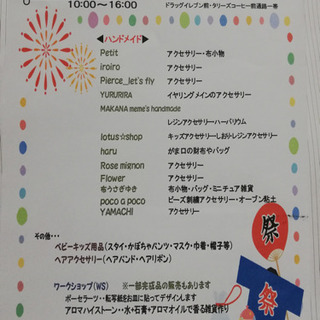 10:00〜16:00
ドラッグイレブン前・タリーズコーヒー前通路一帯
◀ハンドメイド▶
Petit アクセサリー・布小物
iroiro アクセサリー
Pierce_let's fly アクセサリー
YURURIRA イヤリングメインのアクセサリー
MAKANA meme's handmade
レジンアクセサリーハーバリウム
lotus☆shop キッズアクセサリーしおりレジンアクセサリー
haru がま口の財布やバッグ
Rose mignon アクセサリー
Flower アクセサリー
布うさぎゆき 布小物・バッグ・ミニチュア雑貨
poco a poco ビーズ刺繍アクセサリー・オーブン粘土
YAMACHI アクセサリー
その他・・
ベビーキッズ用品(スタイ・かぼちゃパンツ・マスク・巾着・帽子等)
ヘアアクセサリー(ヘアバンド・ヘアリボン)
ワークショップ(WS) ※一部完成品の販売もあります
ポーセラーツ・・転写紙をお皿に貼ってデザインします
アロマハイストーン・・水+石膏+アロマオイルで香る雑貨作り
祭
祭